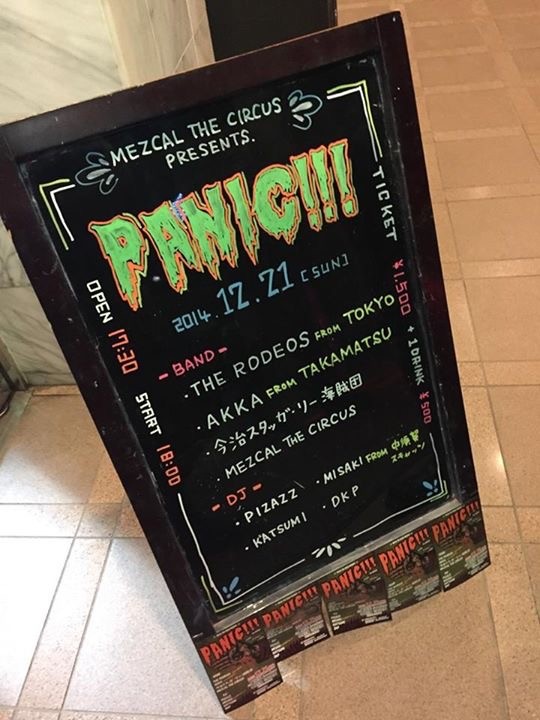 MEZCAL THE CIRCUS
PRESENTS.
PANIC!!!
2014.12.21 [SUN]
OPEN 17:30 START 18:00
TICKET ¥1,500 + 1DRINK ¥500
- BAND -
・THE RODEOS FROM TOKYO
・AKKA FROM TAKAMATSU
・今治スタッガ・リー海賊団
・MEZCAL THE CIRCUS
- DJ -
・PIZAZZ ・MISAKI FROM 中須賀スキャッツ
・KATSUMI ・DKP
PANIC!!!
PANIC!!!
PANIC!!!
PANIC!!!
PANIC!!!